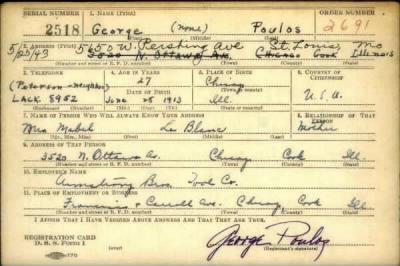 SERIAL NUMBER 1. NAME (Print) ORDER NUMBER
2518 George (none) Poulos 2691
(First) (Middle) (Last)
5/20/43 5650 W. Pershing Ave St. Louis, Mo
2. ADDRESS (Print)
3520 N. Ottawa Ave. Chicago Cook Illinois
(Number and street or R. F. D. number) (Town) (County) (State)
3. TELEPHONE 4. AGE IN YEARS 5. PLACE OF BIRTH 6. COUNTRY OF CITIZENSHIP
(Peterson-neighbor) 27 Chicago
DATE OF BIRTH (Town or county)
LACK 8952 June 28 1913 Ill. U.S.A.
(Exchange) (Number) (Mo.) (Day) (Yr.) (State or country)
7. NAME OF PERSON WHO WILL ALWAYS KNOW YOUR ADDRESS 8. RELATIONSHIP OF THAT PERSON
Mrs Mabel Le Blanc Mother
(Mr., Mrs., Miss) (First) (Middle) (Last)
9. ADDRESS OF THAT PERSON
3520 N. Ottawa Av. Chicago Cook Ill.
(Number and street or R. F. D. number) (Town) (County) (State)
10. EMPLOYER'S NAME
Armstrong Bros. Tool Co.
11. PLACE OF EMPLOYMENT OR BUSINESS
Francisco & Carroll Ave. Chicago, Cook Ill.
(Number and street or R. F. D. number) (Town) (County) (State)
I AFFIRM THAT I HAVE VERIFIED ABOVE ANSWERS AND THAT THEY ARE TRUE.
REGISTRATION CARD
D. S. S. Form 1 George Poulos
(Registrant's signature)